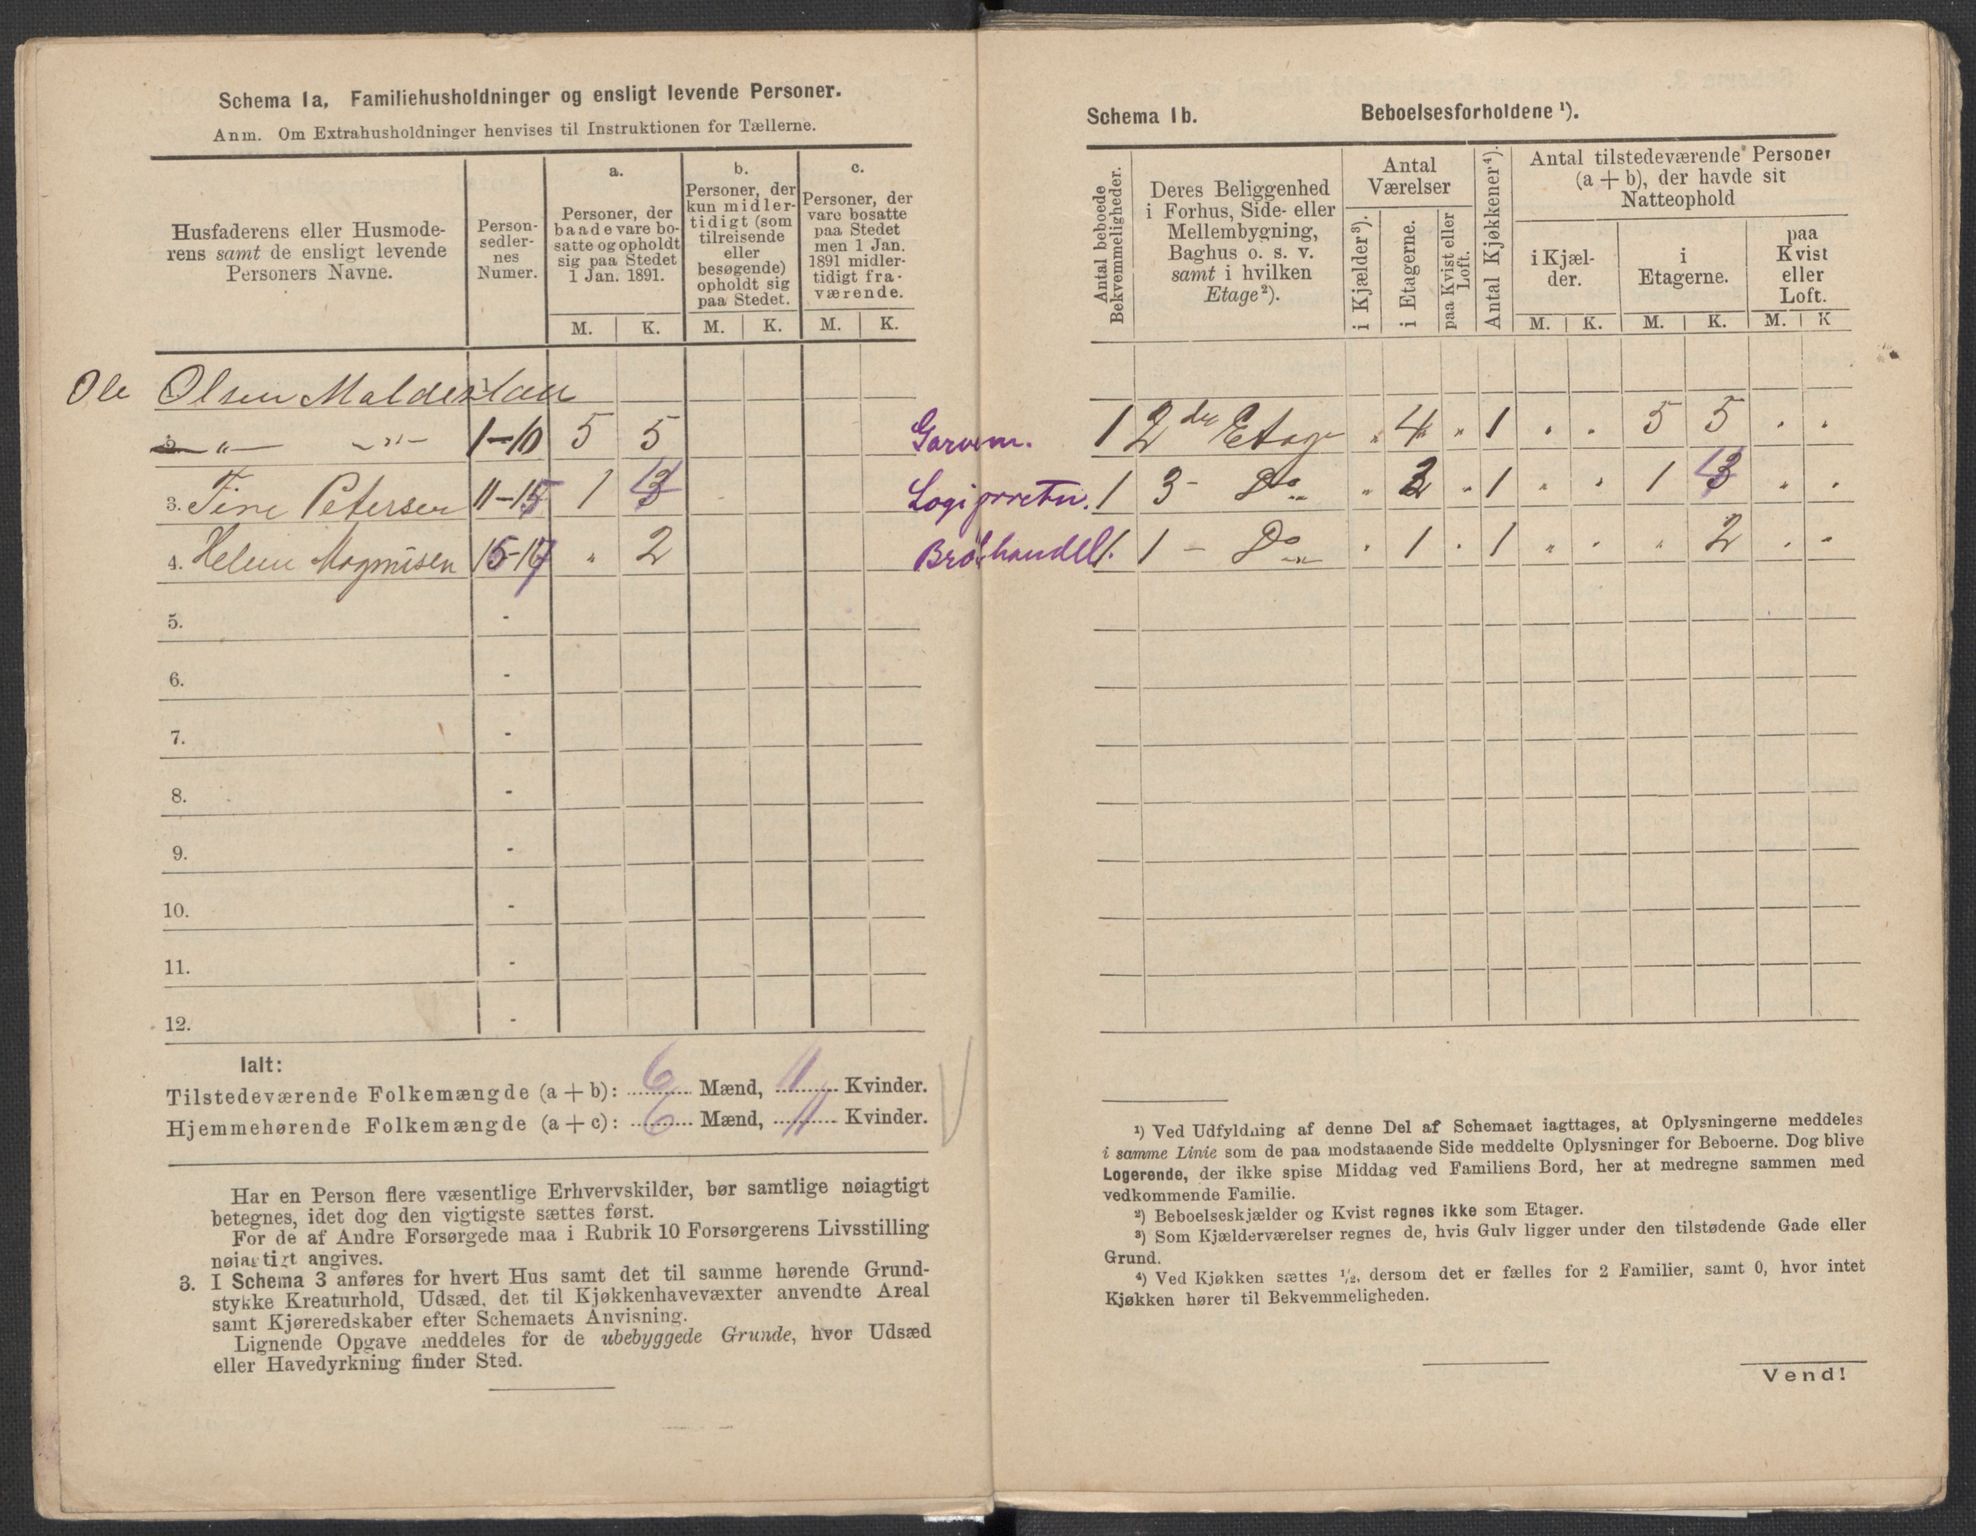 Schema 1a, Familiehusholdninger og ensligt levende Personer.
Anm. Om Extrahusholdninger henvises til Instruktionen for Tællerne.
Husfaderens eller Husmode-
rens samt de ensligt levende
Personers Navne.
Person-
sedler-
nes
Numer.
a.
Personer, der
baade vare bo-
satte og opholdt
sig paa Stedet
1 Jan. 1891.
b.
Personer, der
kun midler-
tidigt (som
tilreisende
eller
besøgende)
opholdt sig
paa Stedet.
c.
Personer, der
vare bosatte
paa Stedet
men 1 Jan.
1891 midler-
tidigt fra-
værende.
M. K. M. K. M. K.
Ole Olsen
2. „ „ 1-10 5 5 Garvem.
3. Tine Petersen 11-15 1 4
4. Helene Magnusen 16-17 „ 2
5. -
6. -
7. -
8. -
9. -
10. -
11. -
12. -
Ialt:
Tilstedeværende Folkemængde (a + b): 6 Mænd, 11 Kvinder.
Hjemmehørende Folkemængde (a + c): 6 Mænd, 11 Kvinder.
Har en Person flere væsentlige Erhvervskilder, bør samtlige nøiagtigt
betegnes, idet dog den vigtigste sættes først.
For de af Andre Forsørgede maa i Rubrik 10 Forsørgerens Livsstilling
nøiagtigt angives.
3. I Schema 3 anføres for hvert Hus samt det til samme hørende Grund-
stykke Kreaturhold, Udsæd, det til Kjøkkenhavevæxter anvendte Areal
samt Kjøreredskaber efter Schemaets Anvisning.
Lignende Opgave meddeles for de ubebyggede Grunde, hvor Udsæd
eller Havedyrkning finder Sted.
Schema 1b. Beboelsesforholdene ¹).
Antal beboede
Bekvemmeligheder.
Deres Beliggenhed
i Forhus, Side- eller
Mellembygning,
Baghus o. s. v.
samt i hvilken
Etage²).
Antal
Værelser
i Kjælder³).
i Etagerne.
paa Kvist eller
Loft.
Antal Kjøkkener⁴).
Antal tilstedeværende Personer
(a + b), der havde sit
Natteophold
i Kjæl-
der.
i
Etagerne.
paa
Kvist
eller
Loft.
M. K. M. K. M. K
1 2den Etage „ 4 „ 1 „ „ 5 5 „ „
1 3 - Do „ 2 „ 1 „ „ 1 4 „ „
1 1 - Do „ 1 „ 1 „ „ „ 2 „ „
¹) Ved Udfyldning af denne Del af Schemaet iagttages, at Oplysningerne meddeles
i samme Linie som de paa modstaaende Side meddelte Oplysninger for Beboerne. Dog blive
Logerende, der ikke spise Middag ved Familiens Bord, her at medregne sammen med
vedkommende Familie.
²) Beboelseskjælder og Kvist regnes ikke som Etager.
³) Som Kjælderværelser regnes de, hvis Gulv ligger under den tilstødende Gade eller
Grund.
⁴) Ved Kjøkken sættes ½, dersom det er fælles for 2 Familier, samt 0, hvor intet
Kjøkken hører til Bekvemmeligheden.
Vend!